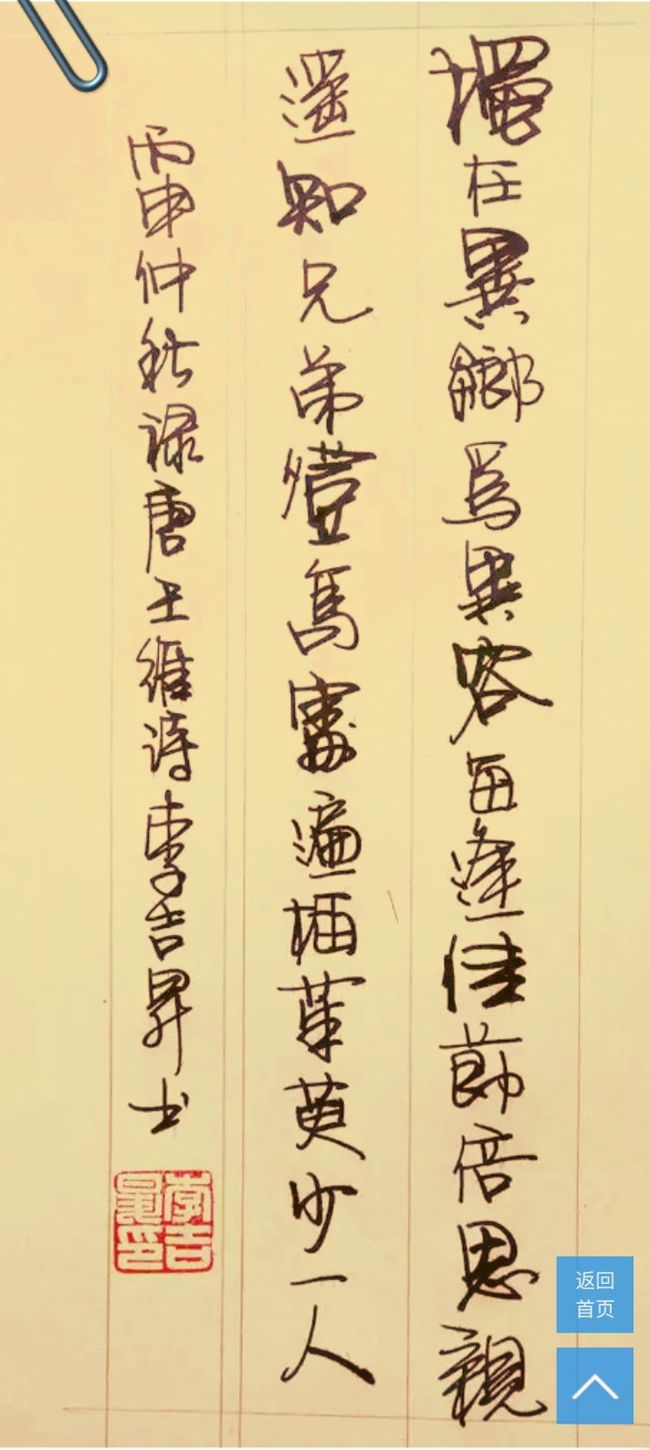 獨在異鄉爲異客每逢佳節倍思親
遙知兄弟登高處遍插茱萸少一人
丙申仲秋録唐王維詩李吉昇书
李吉昇印
返回
首页